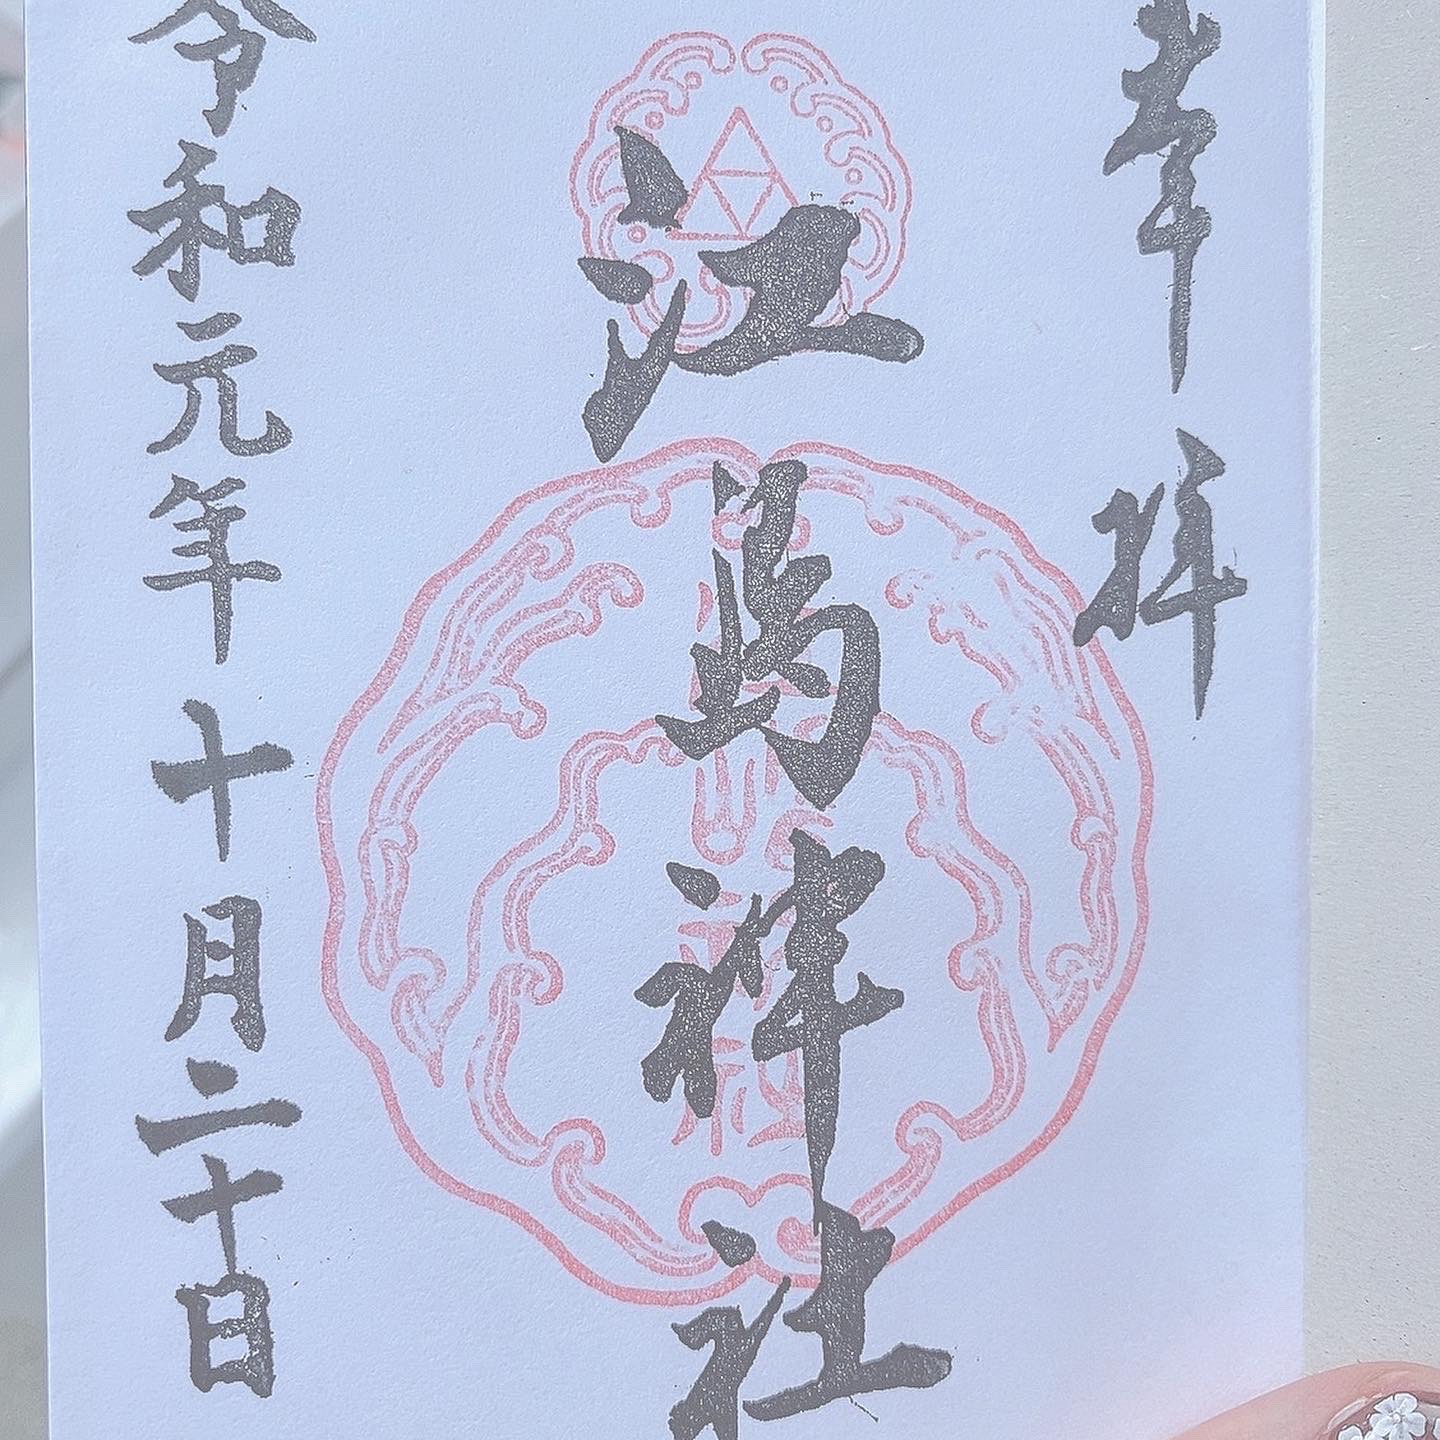 奉拝
江島神社
令和元年十月二十日